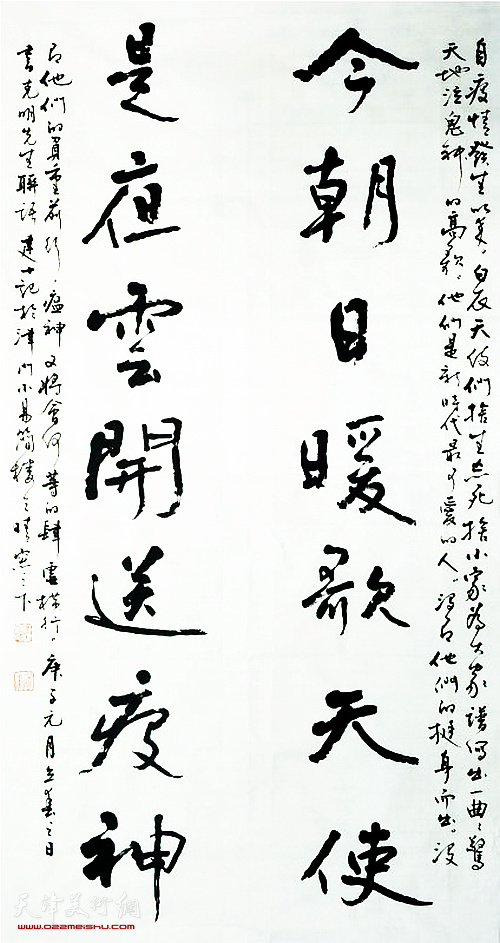 自疫情發生以来，白衣天使們捨生忘死捨小家為大家譜寫出一曲々驚
天地泣鬼神的高歌，他们是新時代最可愛的人。没有他們的挺身而出，没
今朝日暖歌天使
是夜雲開送疫神
有他們的負重前行，瘟神又將會何等的肆虐橫行。庚子元月立春之日
書克明先生聯語 建記於津门小易簡樓之晴窓之下
天津美術網
www.022meishu.com